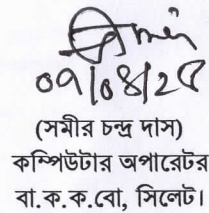 ০৭/০৪/২৫
(সমীর চন্দ্র দাস)
কম্পিউটার অপারেটর
বা.ক.ক.বো, সিলেট।